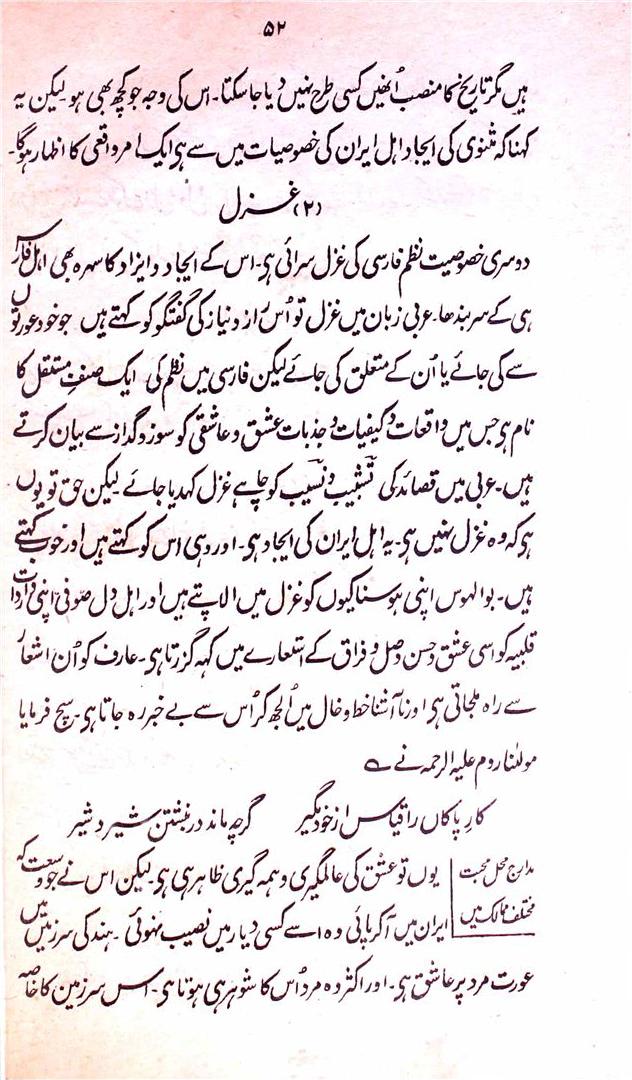 ۵۲
ہیں مگر تاریخ کا منصب اُنھیں کسی طرح نہیں دیا جا سکتا۔ اس کی وجہ جو کچھ بھی ہو لیکن یہ
کہنا کہ مثنوی کی ایجاد اہل ایران کی خصوصیات میں سے ہی ایک امر واقعی کا اظہار ہوگا۔
(۲) غزل
دوسری خصوصیت نظم فارسی کی غزل سرائی ہی۔ اس کے ایجاد و ایزاد کا سہرہ بھی اہل فارس
ہی کے سر بندھا۔ عربی زبان میں غزل تو اُس راز و نیاز کی گفتگو کو کہتے ہیں جو خود عورتوں
سے کی جائے یا اُن کے متعلق کی جائے لیکن فارسی میں نظم کی ایک صنفِ مستقل کا
نام ہی جس میں واقعات و کیفیات و جذبات عشق و عاشقی کو سوز و گداز سے بیان کرتے
ہیں۔ عربی میں قصائد کی تشبیب و نسیب کو چاہے غزل کہدیا جائے لیکن حق تو یوں
ہی کہ وہ غزل نہیں ہی۔ یہ اہل ایران کی ایجاد ہی۔ اور وہی اس کو کہتے ہیں اور خوب کہتے
ہیں۔ بوالہوس اپنی ہوسناکیوں کو غزل میں الاپتے ہیں اور اہل دل صوفی اپنی واردات
قلبیہ کو اسی عشق و حسن و وصل و فراق کے استعارے میں کہہ گزرتا ہی۔ عارف کو اُن اشعار
سے راہ ملجاتی ہی اور ناآشنا خط و خال میں اُلجھ کر اُس سے بے خبر رہ جاتا ہی۔ سچ فرمایا
مولٰنا روم علیہ الرحمہ نے ؎
کارِ پاکاں را قیاس از خود مگیر گرچہ ماند در نبشتن شیر و شیر
مدارج محل محبت
مختلف ممالک میں
یوں تو عشق کی عالمگیری و ہمہ گیری ظاہر ہی ہی۔ لیکن اس نے جو وسعت کہ
ایران میں آکر پائی وہ اسے کسی دیار میں نصیب نہوئی۔ ہند کی سرزمین میں
عورت مرد پر عاشق ہی۔ اور اکثر وہ مرد اُس کا شوہر ہی ہوتا ہی۔ اس سرزمین کا خاصہ